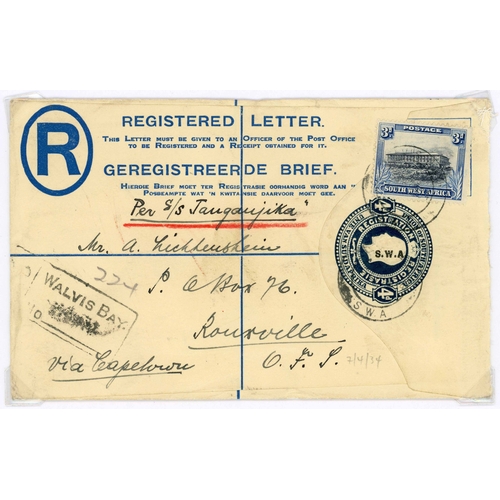 R
REGISTERED LETTER.
THIS LETTER MUST BE GIVEN TO AN OFFICER OF THE POST OFFICE
TO BE REGISTERED AND A RECEIPT OBTAINED FOR IT.
GEREGISTREERDE BRIEF.
HIERDIE BRIEF MOET TER REGISTRASIE OORHANDIG WORD AAN 'N
POSBEAMPTE WAT 'N KWITANSIE DAARVOOR MOET GEE.
3d POSTAGE 3d
SOUTH WEST AFRICA
Per S/S Tanganjika"
Mr. A. Lichtenstein
P. O Box 76.
Rouxville
O. F. S.
via Capetown
224
WALVIS BAY
4d
REGISTRATION
S.W.A
REGISTRASIE
4d
S.W.A
7/4/34